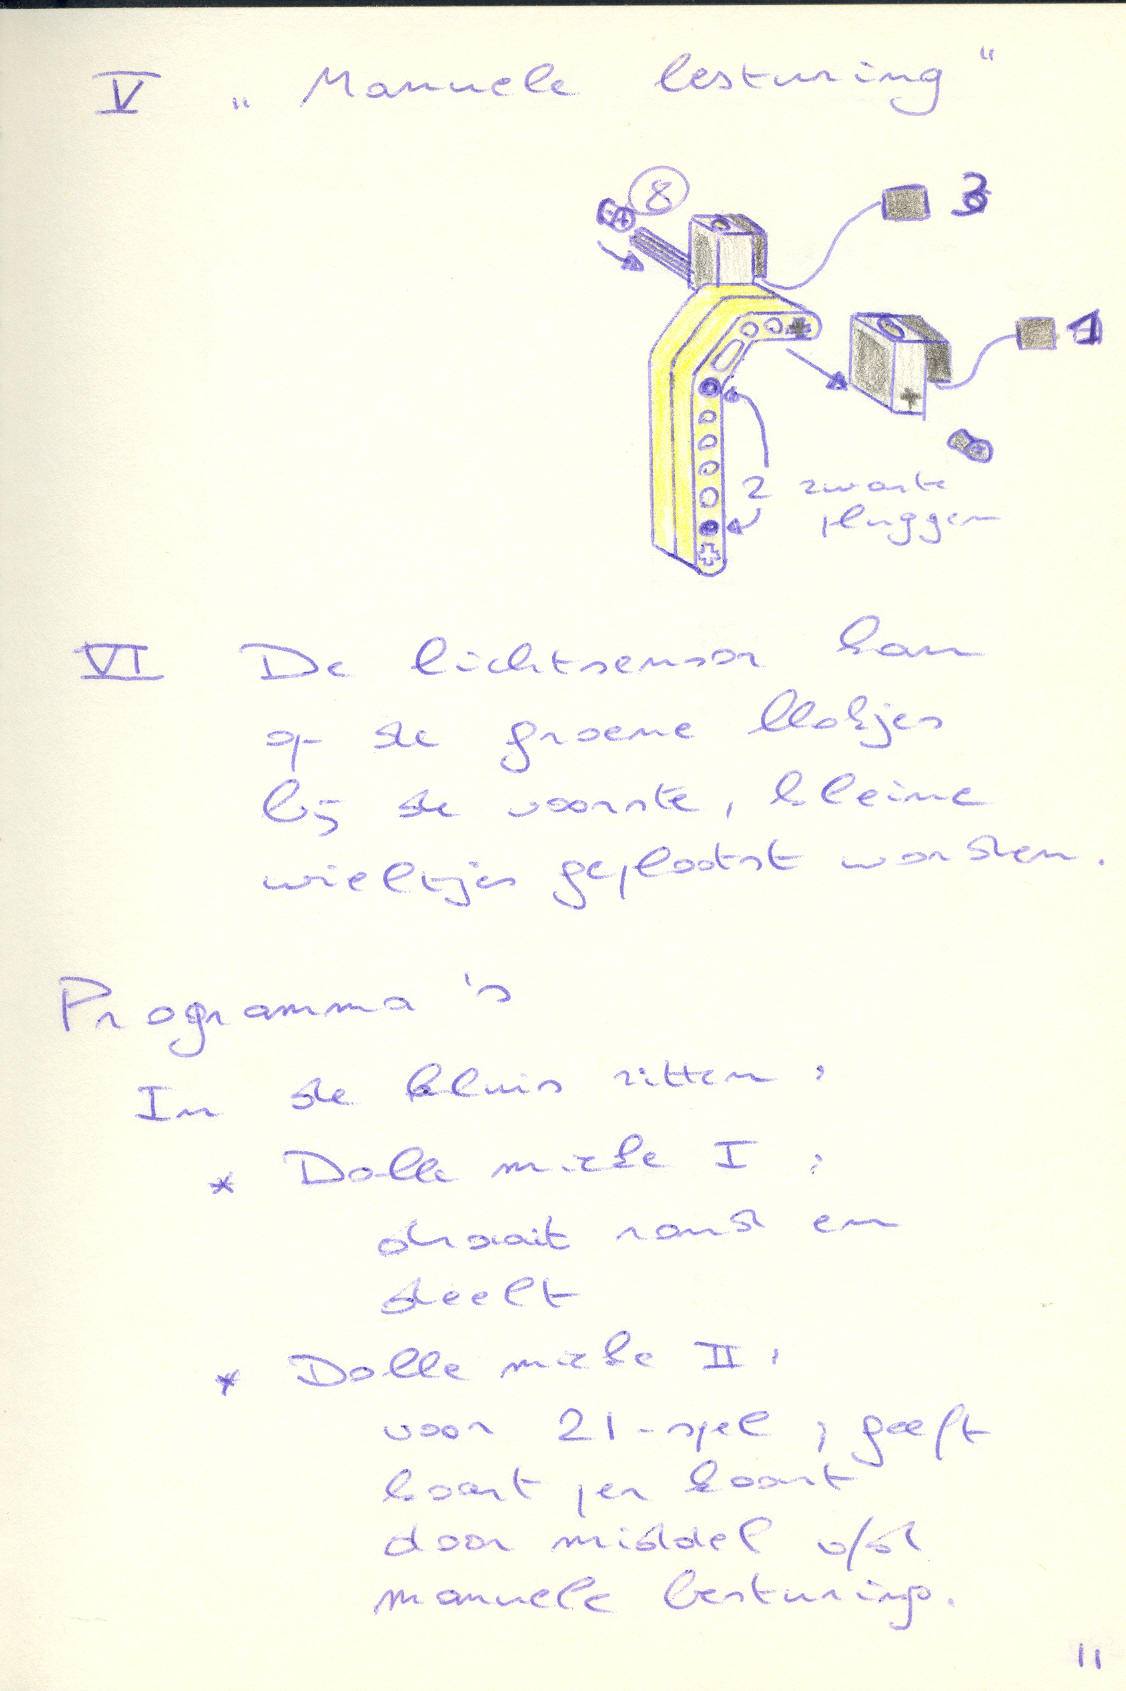 V „ Manuele besturing "
8
3
1
2 zwarte
pluggen
VI De lichtsensor kan
op de groene blokjes
bij de voorste, kleine
wieltjes geplaatst worden.
Programma's
In de kluis zitten :
* Dolle mieke I :
draait rond en
deelt
* Dolle mieke II :
voor 21-spel ; geeft
kaart per kaart
door middel v/d
manuele besturing.
11